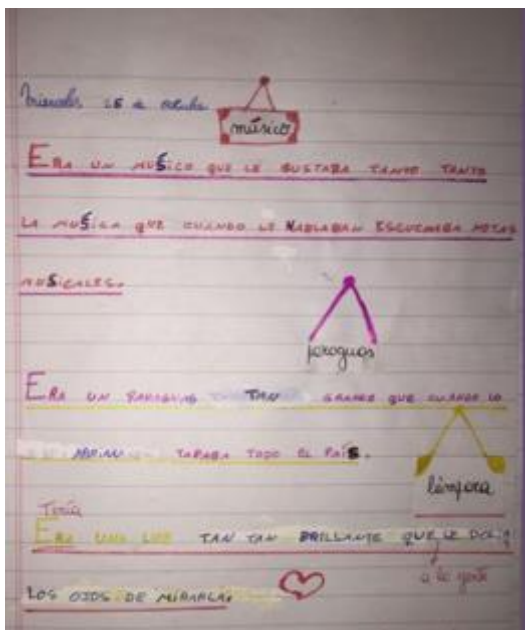 Miércoles 15 de octubre
músico
ERA UN MUSICO QUE LE GUSTABA TANTO TANTO
LA MUSICA QUE CUANDO LE HABLABAN ESCUCHABA NOTAS
MUSICALES.
paraguas
ERA UN PARAGUAS TAN GRANDE QUE CUANDO LO
ABRIAN TAPABA TODO EL PAÍS.
lámpara
Tenía
ERA UNA LUZ TAN TAN BRILLANTE QUE LE DOLIA
a la gente
LOS OJOS DE MIRARLA.